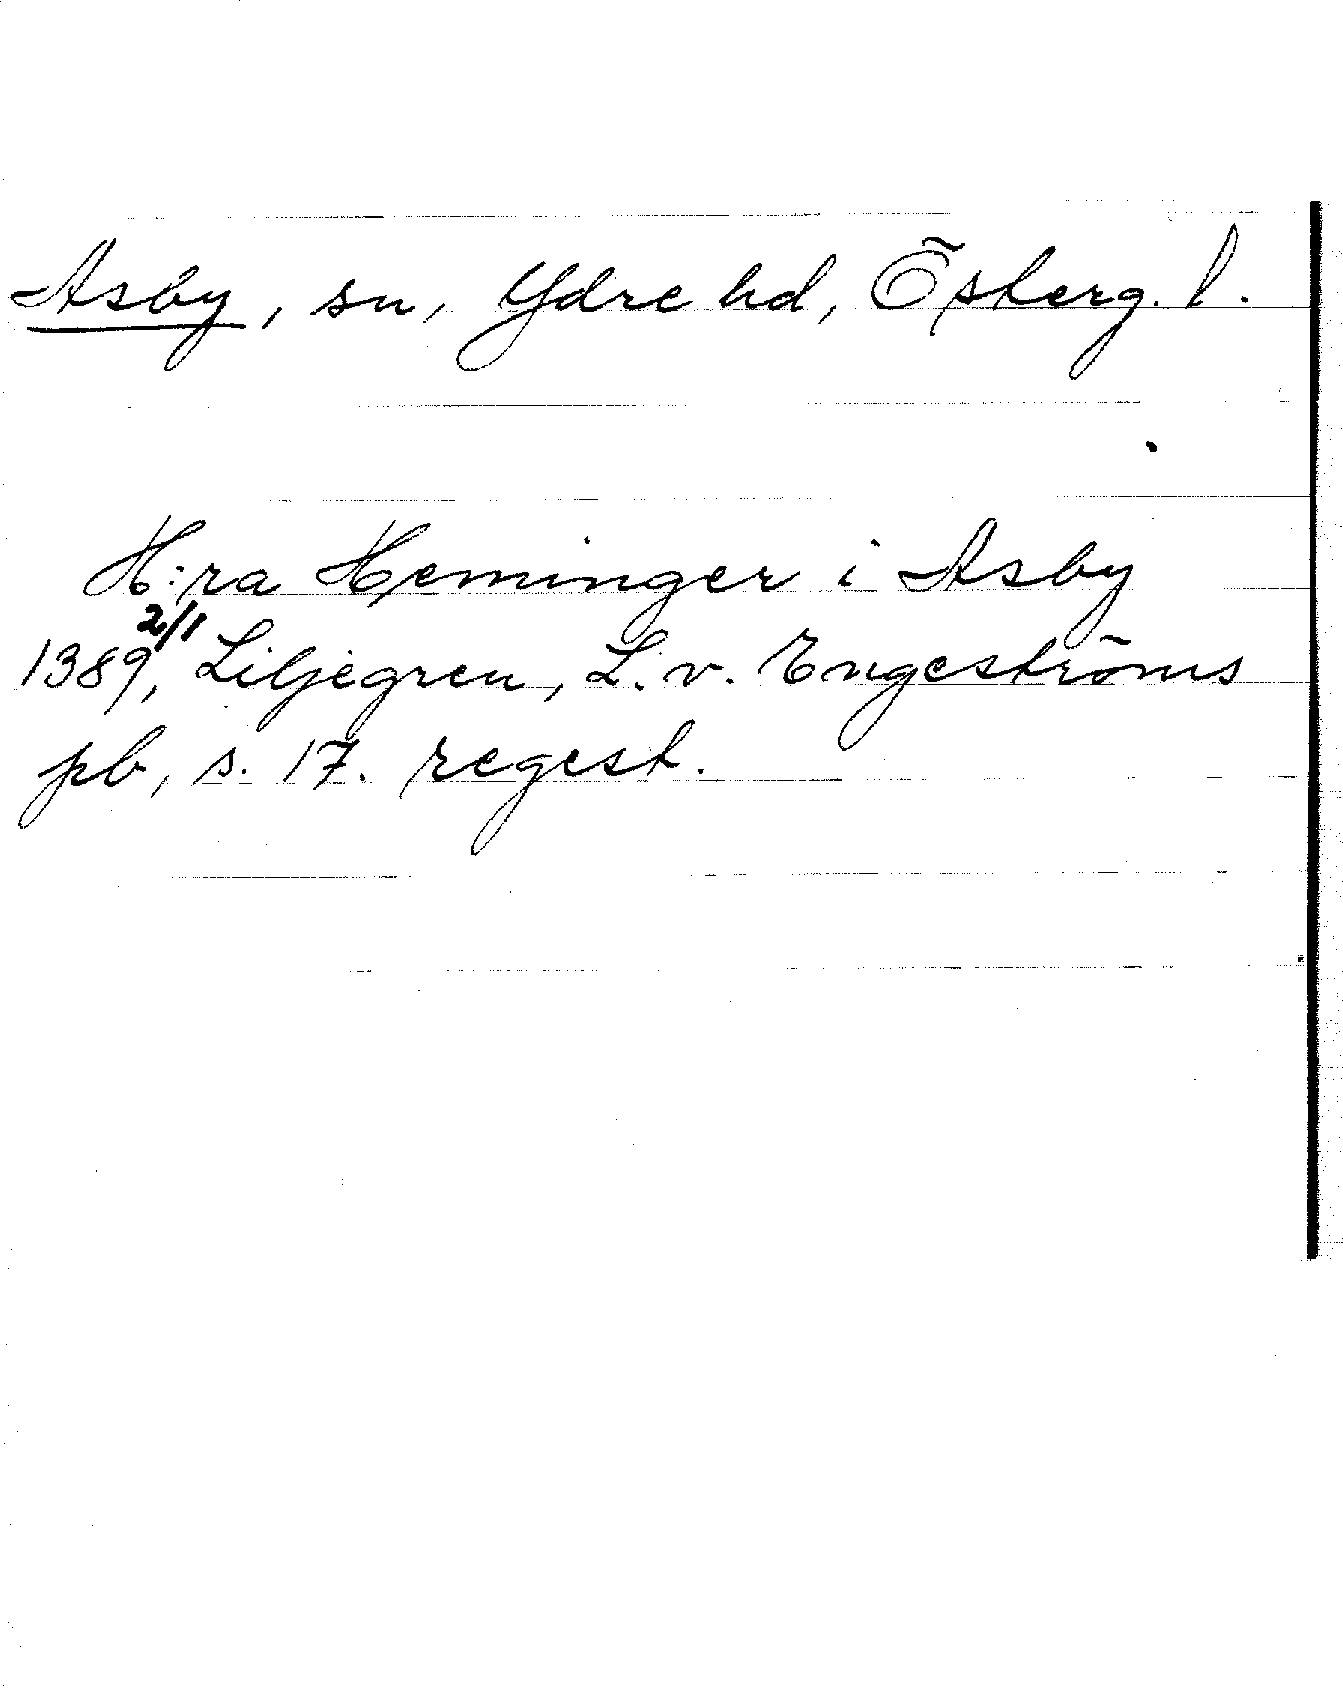 Asby, sn, Ydre hd, Österg. l.
H:ra Heminger i Asby
1389 2/1, Liljegren, L. v. Engeströms
pb, s. 17. regest.